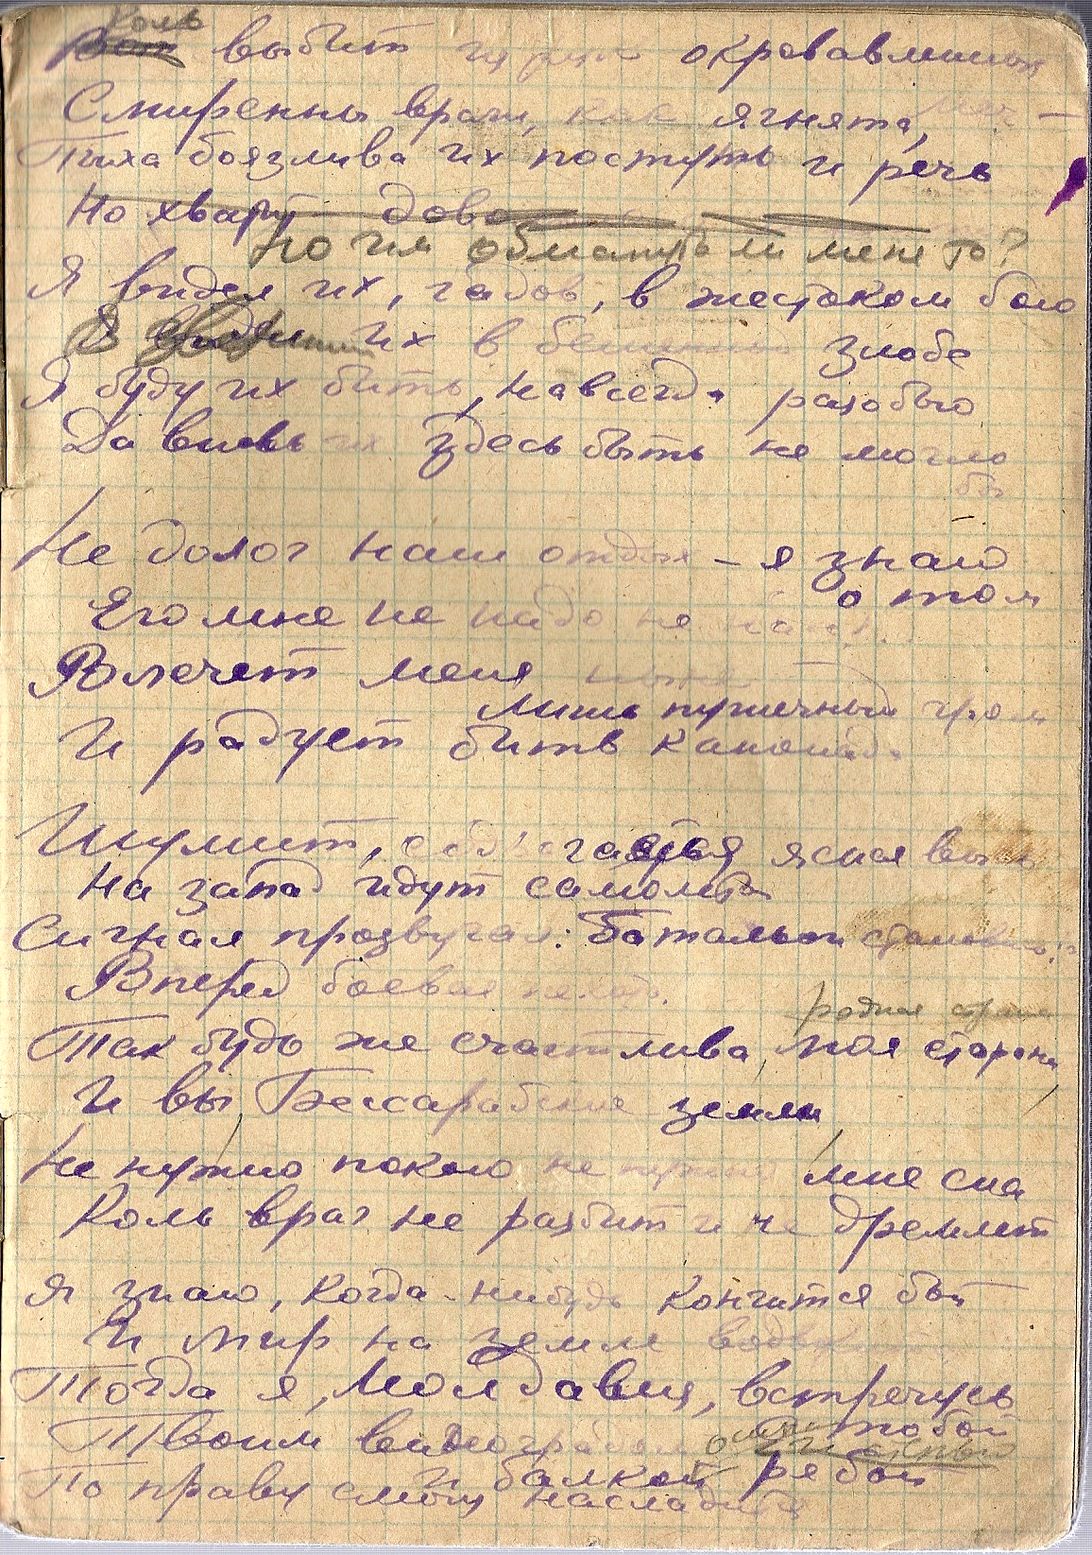 Коль
Вот выбит из рук окровавленный
меч —
Смиренны враги, как ягнята,
Тиха боязлива их поступь и речь
Но хватит дово
Но им обмануть ли меня то?
Я видел их, гадов, в жестоком бою
Я их в бешеной злобе
Я буду их бить, навсегда разобью
Да вновь их здесь быть не могло
бы
Не долог наш отдых – я знаю
о том
Его мне не надо не надо..
Влечет меня
лишь пушечный гром
И радует битв канонада
Шумит, ясная высь
На запад идут самолеты
Сигнал прозвучал: Батальон становись!"
Вперед боевая пехота.
родная страна
Так будь же счастлива, моя сторона
И вы, Бессарабские земли,
Не нужно покою не нужно мне сна
Коль враг не разбит и не дремлет
Я знаю, когда-нибудь кончится бой
И мир на земле
Тогда я, Молдавия, встречусь
с тобой
Твоим виноградом
и балкой рябой
По праву смогу насладиться